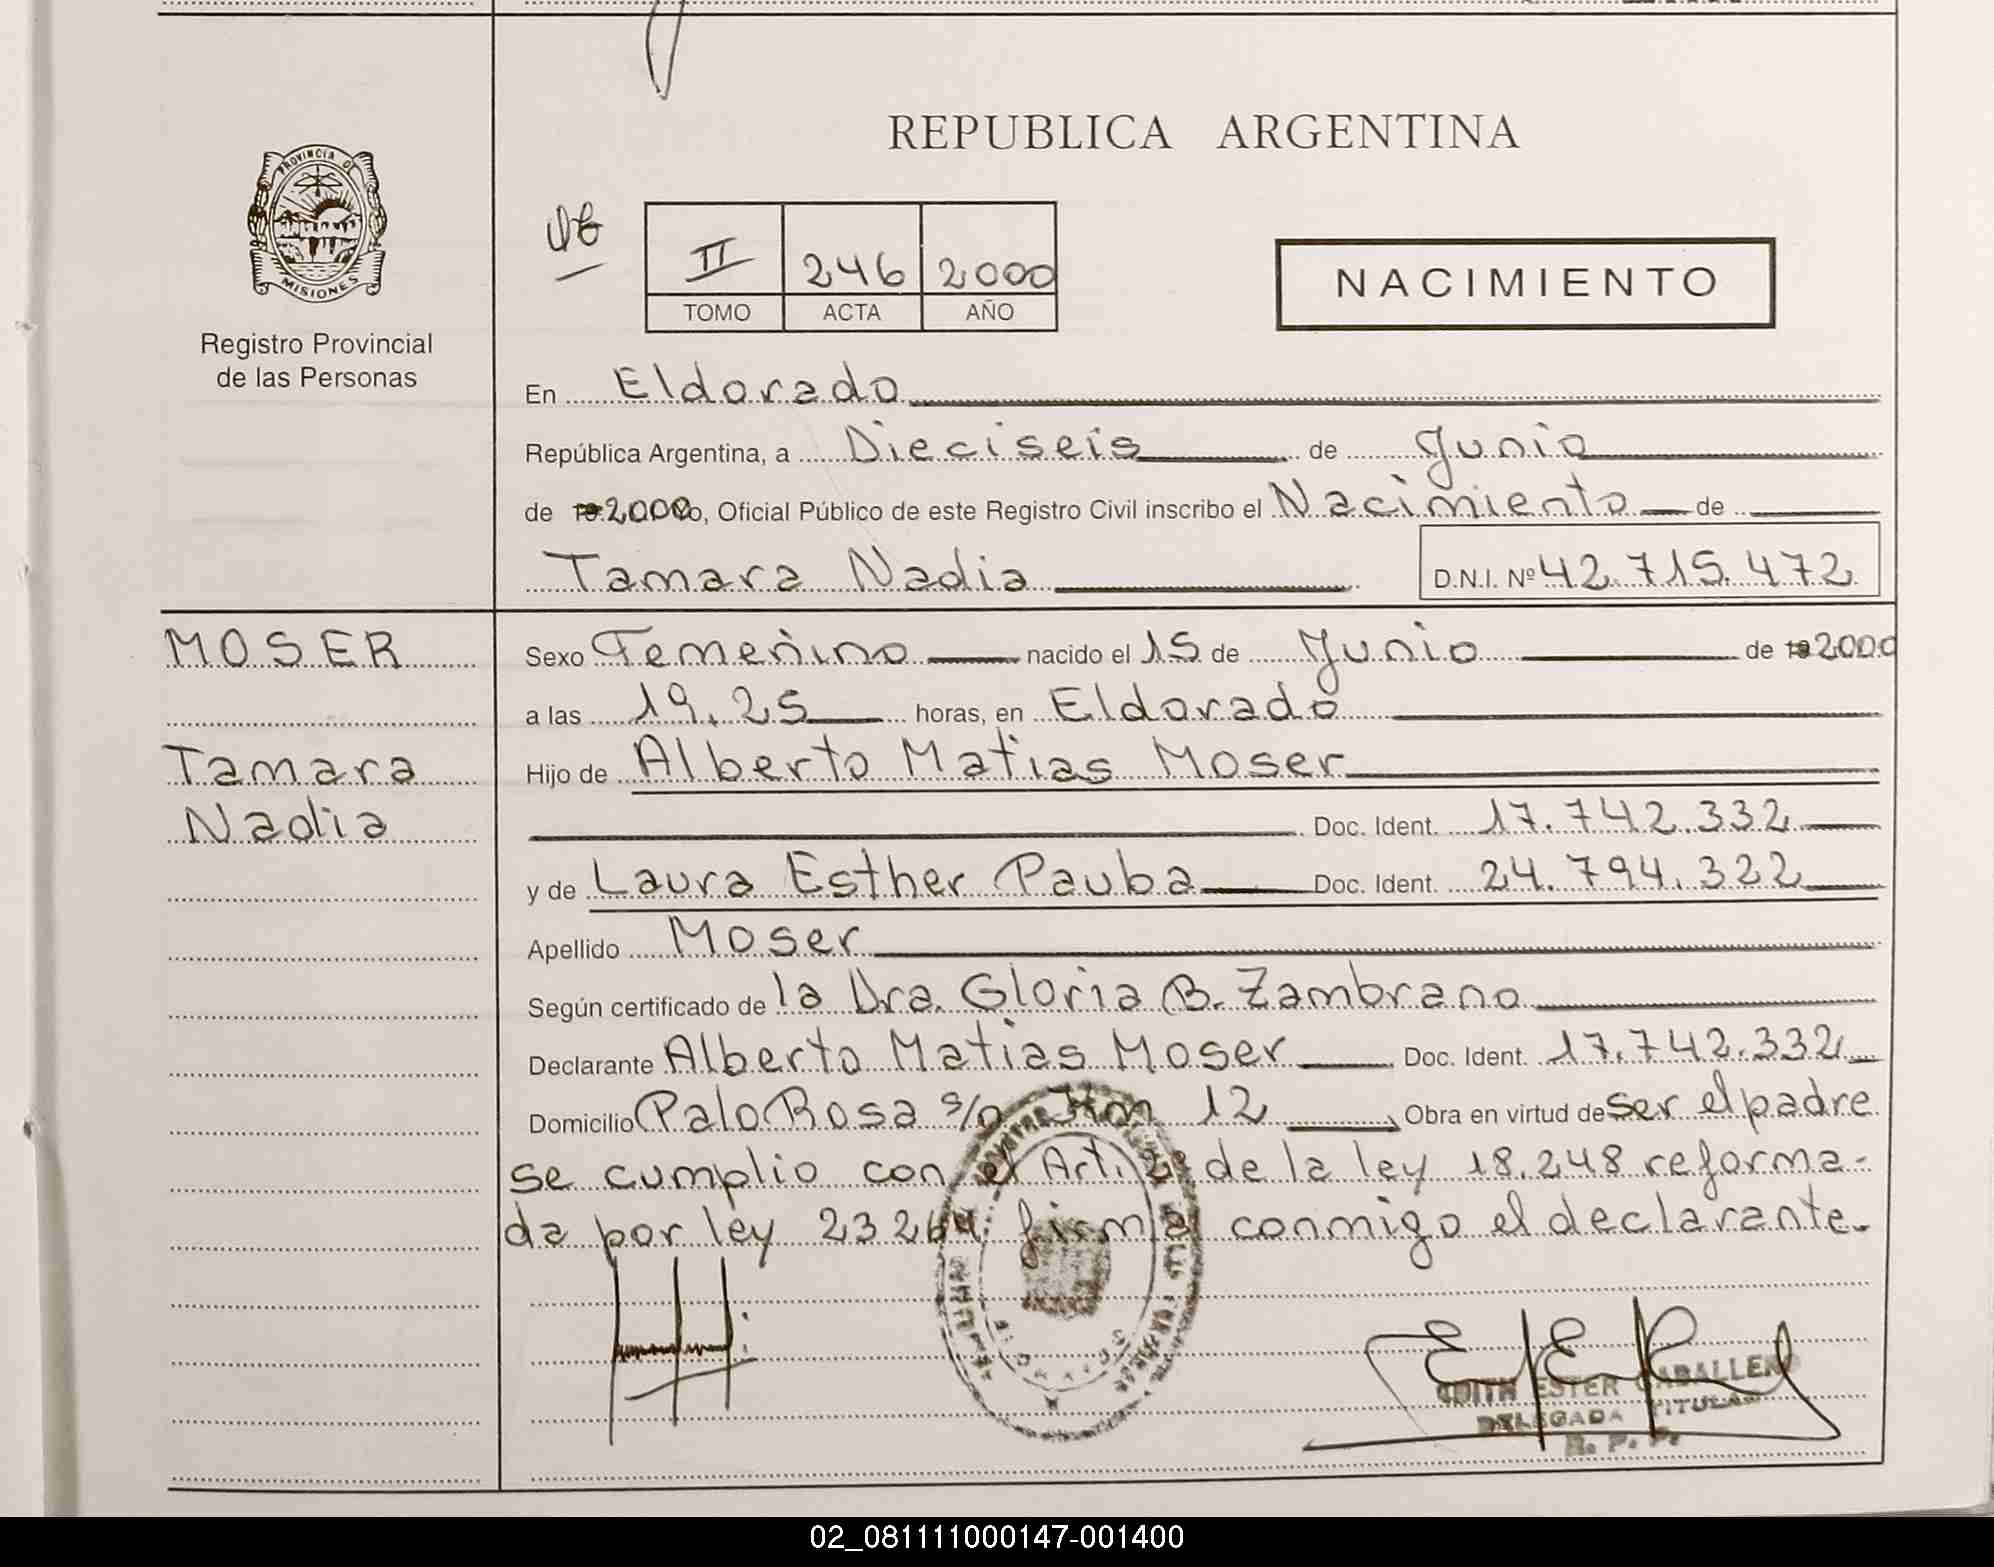 REPUBLICA ARGENTINA
PROVINCIA DE MISIONES
Registro Provincial
de las Personas
II 246 2000
TOMO ACTA AÑO
NACIMIENTO
En Eldorado
República Argentina, a Dieciseis de Junio
de 2000, Oficial Público de este Registro Civil inscribo el Nacimiento de
Tamara Nadia D.N.I. Nº 42.715.472
MOSER
Tamara
Nadia
Sexo Femenino nacido el 15 de Junio de 2000
a las 19.25 horas, en Eldorado
Hijo de Alberto Matias Moser
Doc. Ident. 17.742.332
y de Laura Esther Pauba Doc. Ident. 24.794.322
Apellido Moser
Según certificado de la Dra. Gloria B. Zambrano
Declarante Alberto Matias Moser Doc. Ident. 17.742.332
Domicilio Palo Rosa s/n Km 12, Obra en virtud de ser el padre
se cumplio con el Art. de la ley 18.248 reforma-
da por ley 23264. firma conmigo el declarante.
EDITH ESTER CABALLERO
DELEGADA TITULAR
R. P. P.
02_081111000147-001400